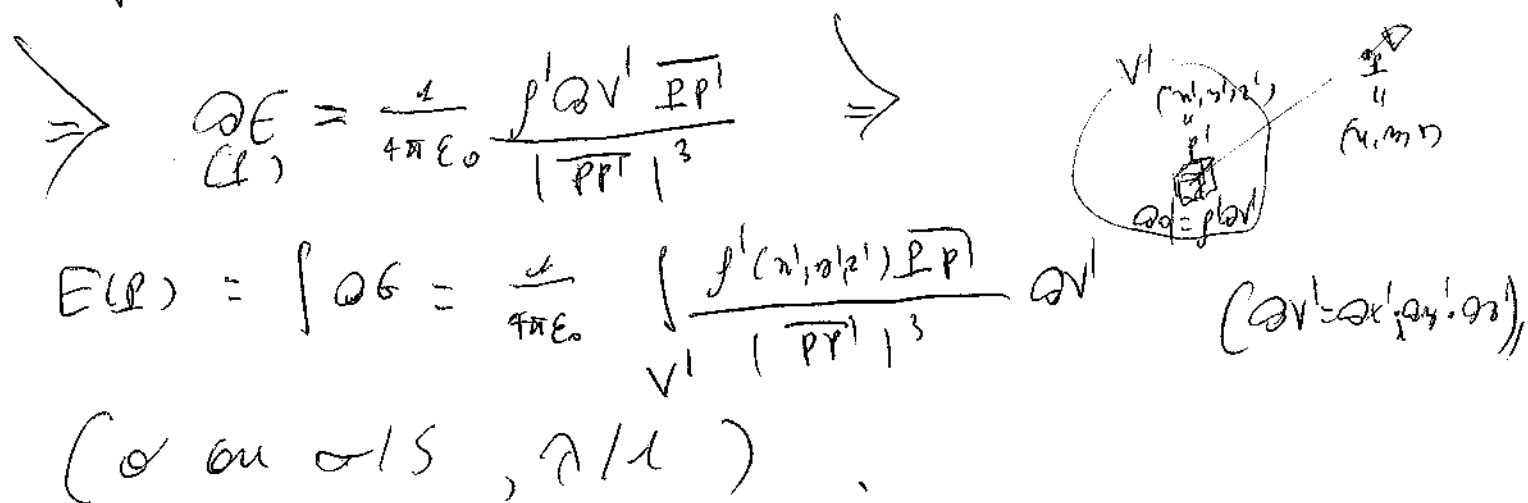 ⇒ dE(P) = 1/4πε₀ ρ'dV' PP' / |PP'|³ ⇒
V'
(x',y',z')
"
P'
dq' = ρ'dV'
P
"
(x,y,z)
E(P) = ∫ dE = 1/4πε₀ ∫V' ρ'(x',y',z') PP' / |PP'|³ dV' (dV'=dx'.dy'.dz')
σ/S , λ/l ) .